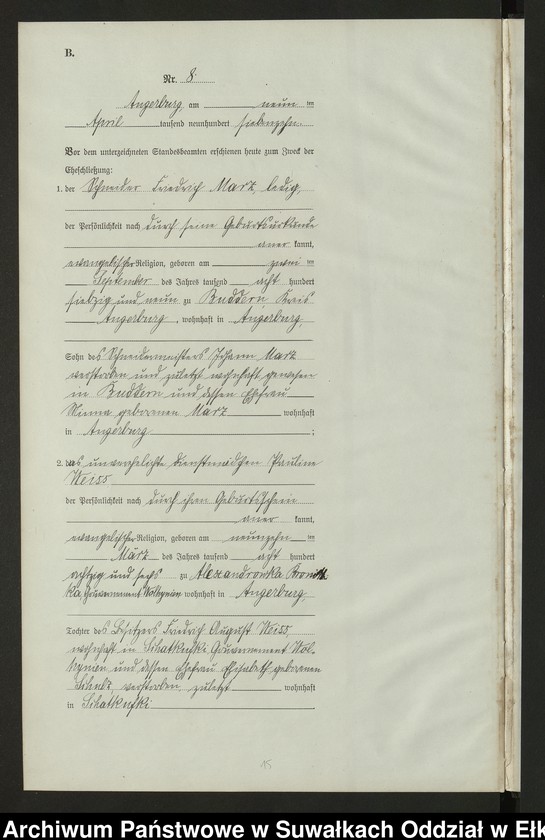 B.
Nr. 8.
Angerburg am neun ten
April tausend neunhundert siebenzehn.
Vor dem unterzeichneten Standesbeamten erschienen heute zum Zweck der
Eheschließung:
1. der Schneider Friedrich Marx, ledig,
der Persönlichkeit nach durch seine Geburtsurkunde
aner kannt,
evangelischer Religion, geboren am zwei ten
September des Jahres tausend acht hundert
siebzig und neun zu Buddern Kreis
Angerburg, wohnhaft in Angerburg,
Sohn des Schneidermeisters Johann Marx
verstorben und zuletzt wohnhaft gewesen
in Buddern und dessen Ehefrau
Minna geborenen Marx wohnhaft
in Angerburg ;
2. das unverehelichte Dienstmädchen Pauline
Weiss
der Persönlichkeit nach durch ihren Geburtsschein
aner kannt,
evangelischer Religion, geboren am neunzehn ten
März des Jahres tausend acht hundert
achtzig und sechs zu Alexandrowka
Gouvernement Wolhynien wohnhaft in Angerburg,
Tochter des Besitzers Friedrich August Weiss,
wohnhaft in Gouvernement Wol-
hynien und dessen Ehefrau Elisabeth geborenen
Schulz, verstorben zuletzt wohnhaft
in
15
Archiwum Państwowe w Suwałkach Oddział w Ełk